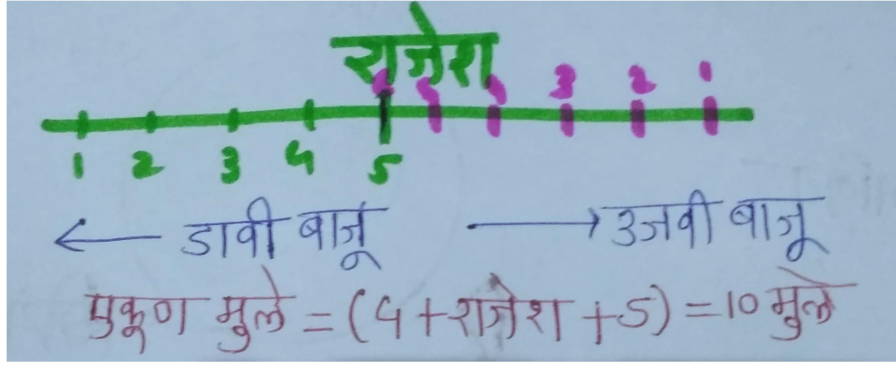 राजेश
3 2 1
1 2 3 4 5
← डावी बाजू → उजवी बाजू
एकूण मुले = (4 + राजेश + 5) = 10 मुले